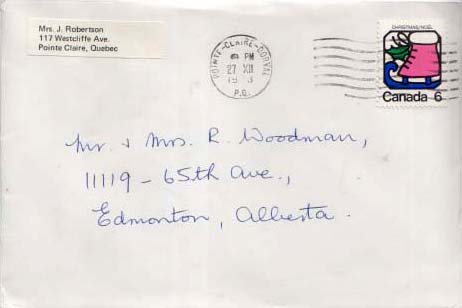 Mrs. J. Robertson
117 Westcliffe Ave.
Pointe Claire, Quebec
POINTE-CLAIRE-DORVAL
PM
27 XII
P.Q.
CHRISTMAS/NOËL
Canada 6
Mr. & Mrs. R. Woodman,
11119 - 65th Ave.,
Edmonton, Alberta.